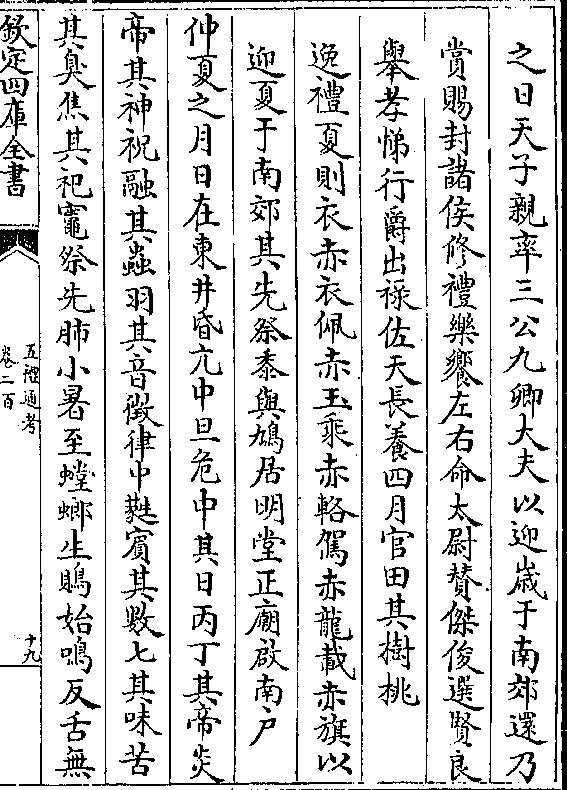 之日天子親率三公九卿大夫以迎嵗于南郊還乃
賞賜封諸侯修禮樂饗左右命太尉賛傑俊選賢良
舉孝悌行爵出祿佐天長養四月官田其樹桃
逸禮夏則衣赤衣佩赤玉乘赤輅駕赤龍載赤旗以
迎夏于南郊其先祭黍與鳩居明堂正廟啟南户
仲夏之月日在東井昏亢中旦危中其日丙丁其帝炎
帝其神祝融其蟲羽其音徵律中蕤賓其數七其味苦
其臭焦其祀竈祭先肺小暑至螳螂生鵙始鳴反舌無
欽定四庫全書
五禮通考
卷二百
十九